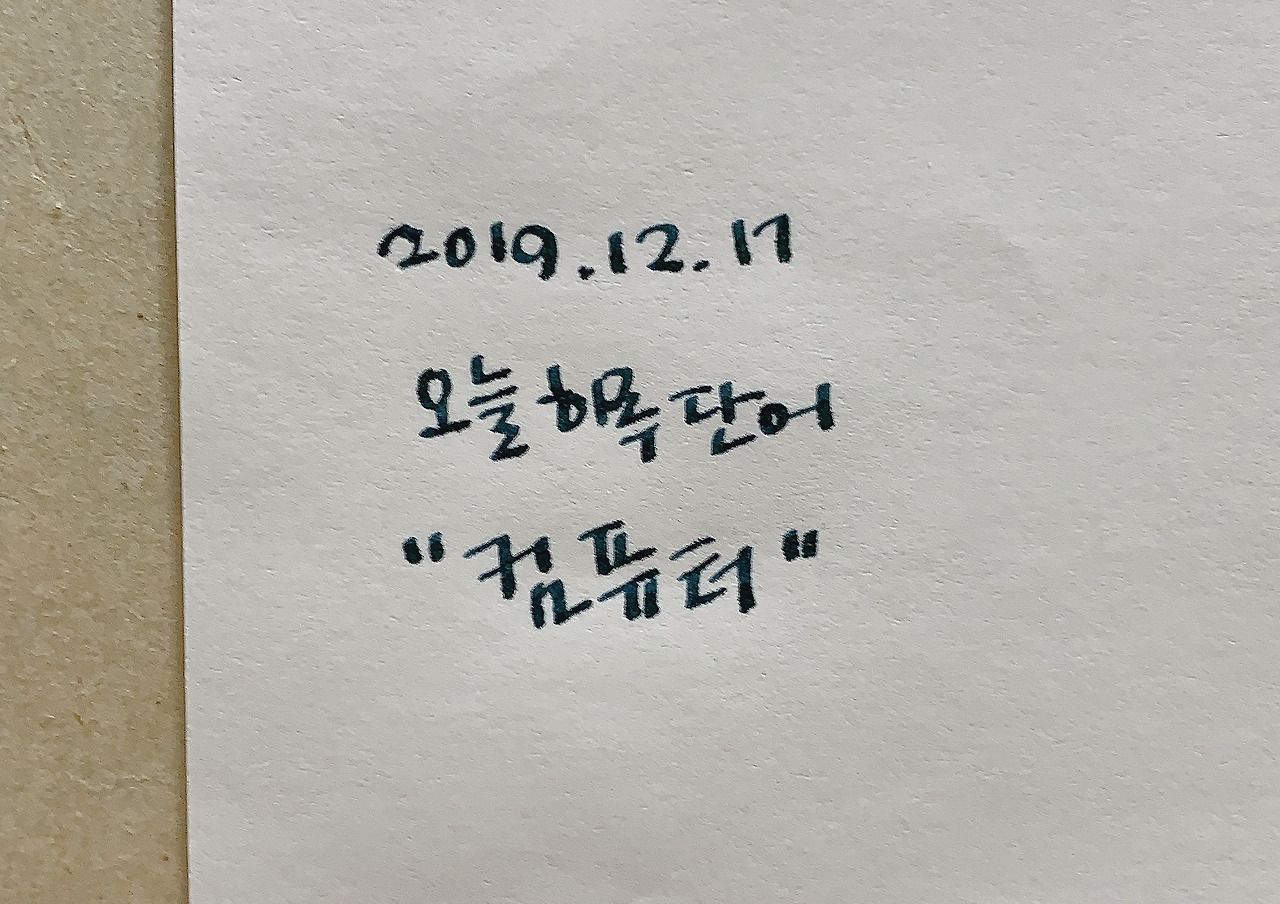 2019.12.17
오늘 단어
"컴퓨터"